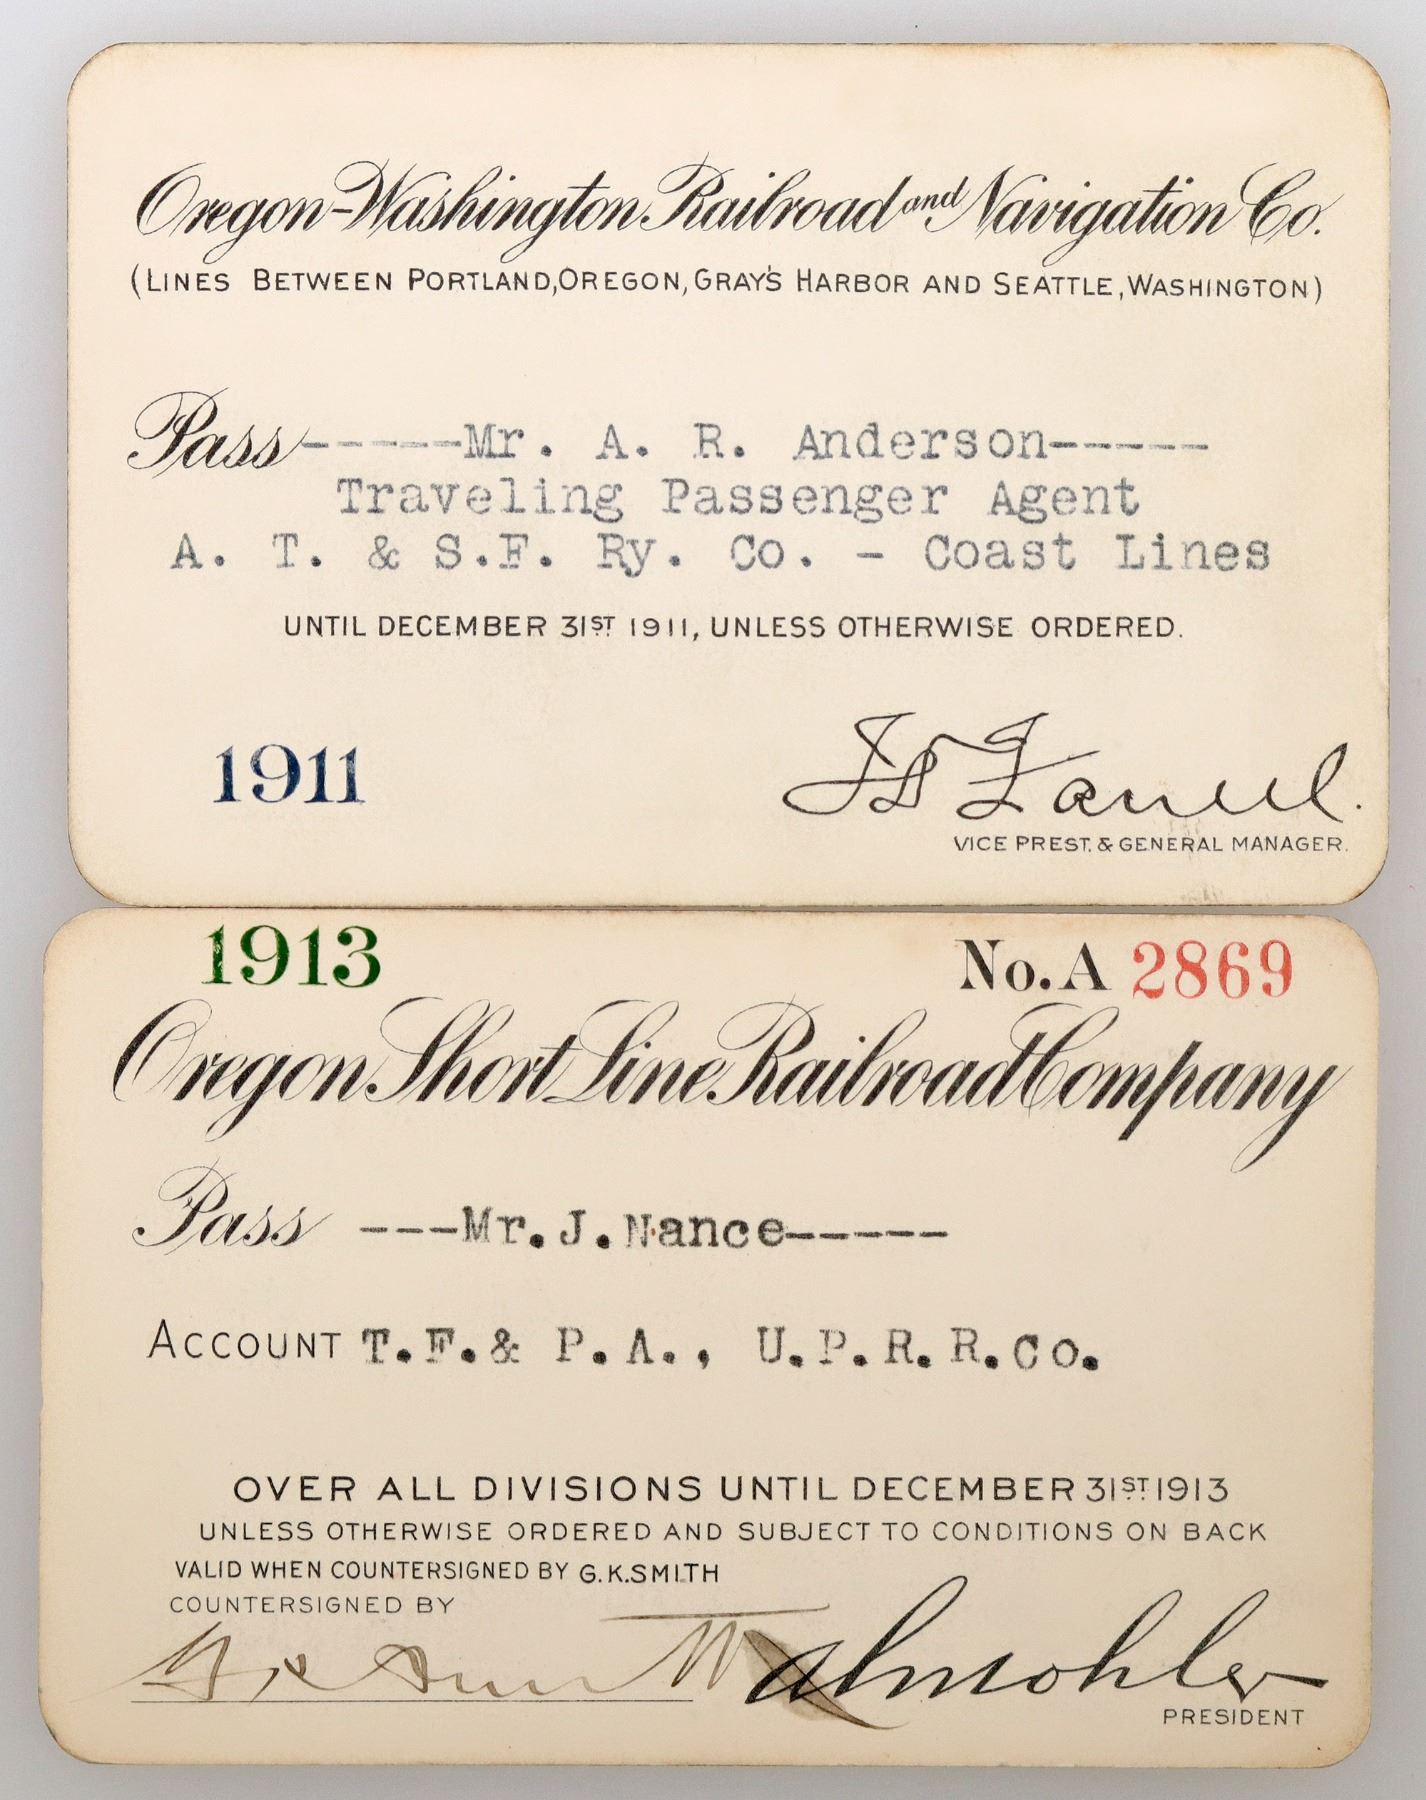 Oregon-Washington Railroad and Navigation Co.
(LINES BETWEEN PORTLAND, OREGON, GRAY'S HARBOR AND SEATTLE, WASHINGTON)
Pass-----Mr. A. R. Anderson-----
Traveling Passenger Agent
A. T. & S.F. Ry. Co. - Coast Lines
UNTIL DECEMBER 31ST 1911, UNLESS OTHERWISE ORDERED.
1911
J D Farrell.
VICE PREST. & GENERAL MANAGER.
1913 No. A 2869
Oregon Short Line Railroad Company
Pass ---Mr.J.Nance-----
ACCOUNT T.F.& P.A., U.P.R.R.Co.
OVER ALL DIVISIONS UNTIL DECEMBER 31ST 1913
UNLESS OTHERWISE ORDERED AND SUBJECT TO CONDITIONS ON BACK
VALID WHEN COUNTERSIGNED BY G.K.SMITH
COUNTERSIGNED BY
G K Smith
A L Mohler
PRESIDENT